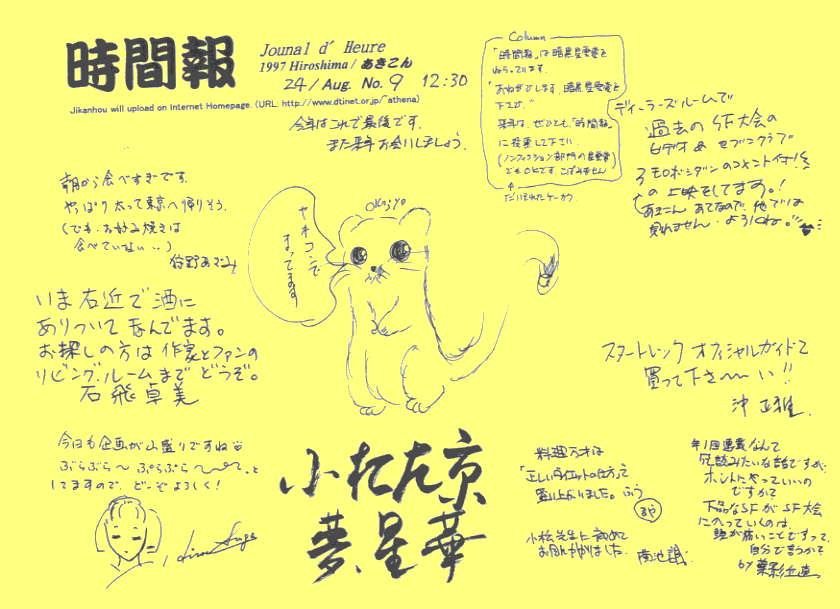 時間報
Jounal d' Heure
1997 Hiroshima / あきこん
24/Aug. No.9 12:30
Jikanhou will upload on Internet Homepage. (URL: http://www.dtinet.or.jp/~athena)
今年はこれで最後です。
また来年お会いしましょう。
Column
「時間報」は暗黒星雲賞を
ねらってります。
"おねがいします、暗黒星雲賞を
下さい。"
来年は、ぜひとも、「時間報」
に投票して下さい。
(ノンフィクション部門の星雲賞
でもOKです。
ディーラーズルームで
過去のSF大会の
ビデオ & セブンクラブ
の上映をしてます。!
あきこん
見れません。ようしくね。
朝から食べすぎです。
やっぱり太って東京へ帰りそう。
(でも、お好み焼きは
食べていない…)
狩野あざみ
OKOJYO
ヤネコンで
まってます
いま右近で酒に
ありついてます。
お探しの方は作家とファンの
リビングルームまでどうぞ。
石飛卓美
スタートレック オフィシャルガイドで
買って下さ〜〜い!!
沖 正雄
今日も企画が山盛りですね
ぶらぶら〜 ぷらぷら〜
してますので、どーぞよろしく!
小松左京
夢、星、華
料理万才は
「正しいダイエットの仕方」で
盛り上がりました。ふう
小松先生に初めて
お目にかかりました。
菊池誠
年1回
冗談みたいな話ですが
ホントにやっていいの
ですかで
下品なSFがSF大会
に入っていくのは、
頭が痛いことですって、
自分で言うかそ
by